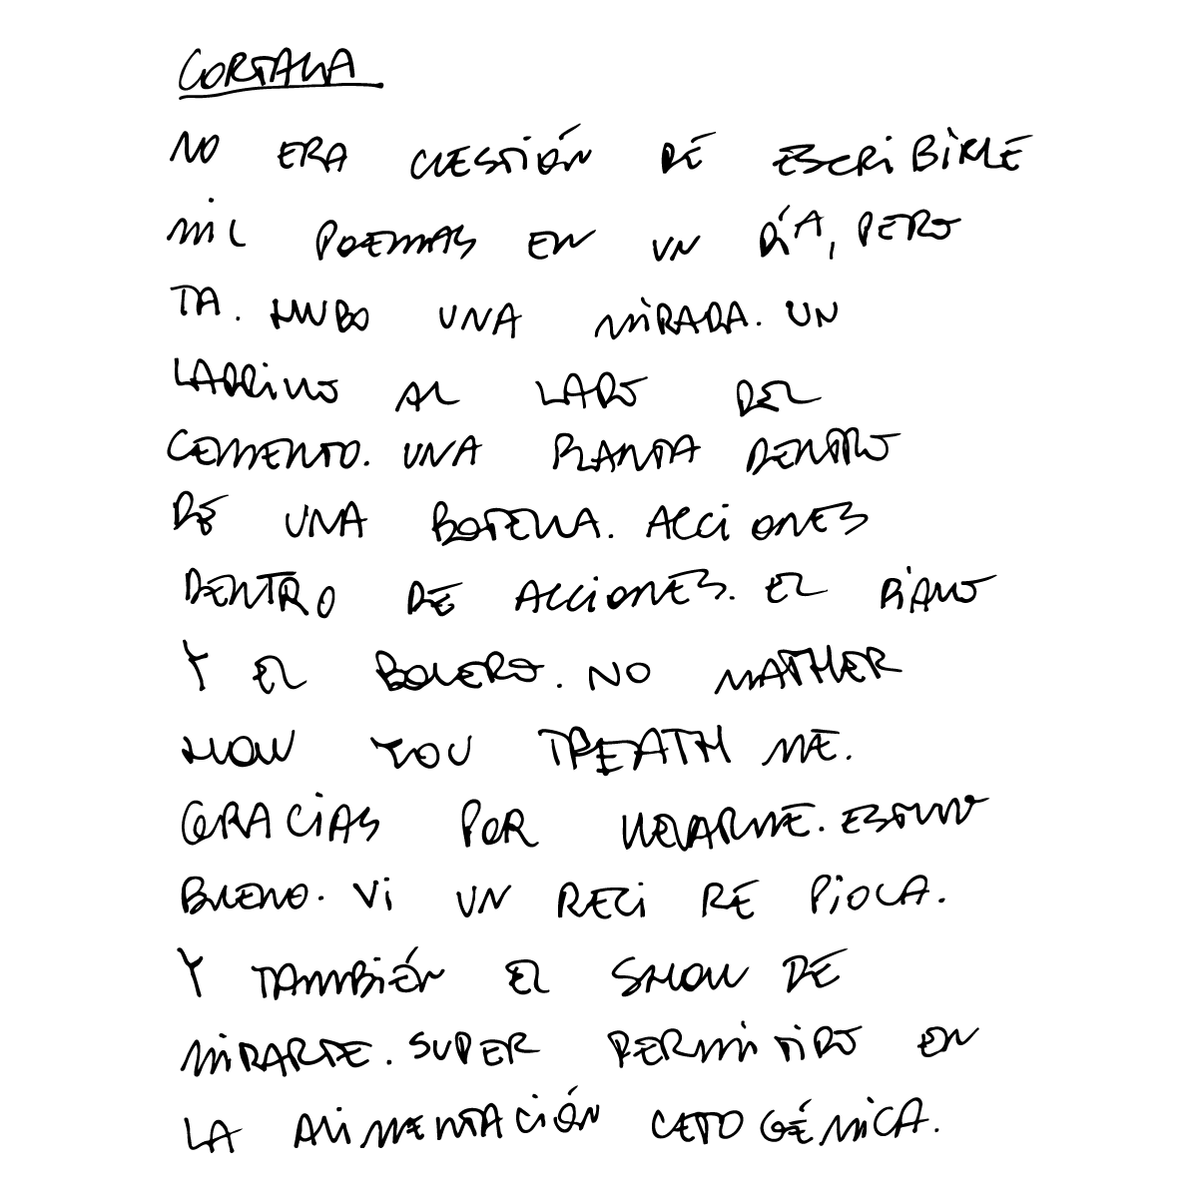 CORTANA
NO ERA CUESTIÓN DE ESCRIBIRLE
MIL POEMAS EN UN DÍA, PERO
TA. HUBO UNA MIRADA. UN
LADRILLO AL LADO DEL
CEMENTO. UNA PLANTA DENTRO
DE UNA BOTELLA. ACCIONES
DENTRO DE ACCIONES. EL PIANO
Y EL BOLERO. NO MATHER
HOW YOU TREATH ME.
GRACIAS POR LLEVARME. ESTUVO
BUENO. VI UN RECI RE PIOLA.
Y TAMBIÉN EL SHOW DE
MIRARTE. SUPER PERMITIDO EN
LA ALIMENTACIÓN CETOGÉNICA.